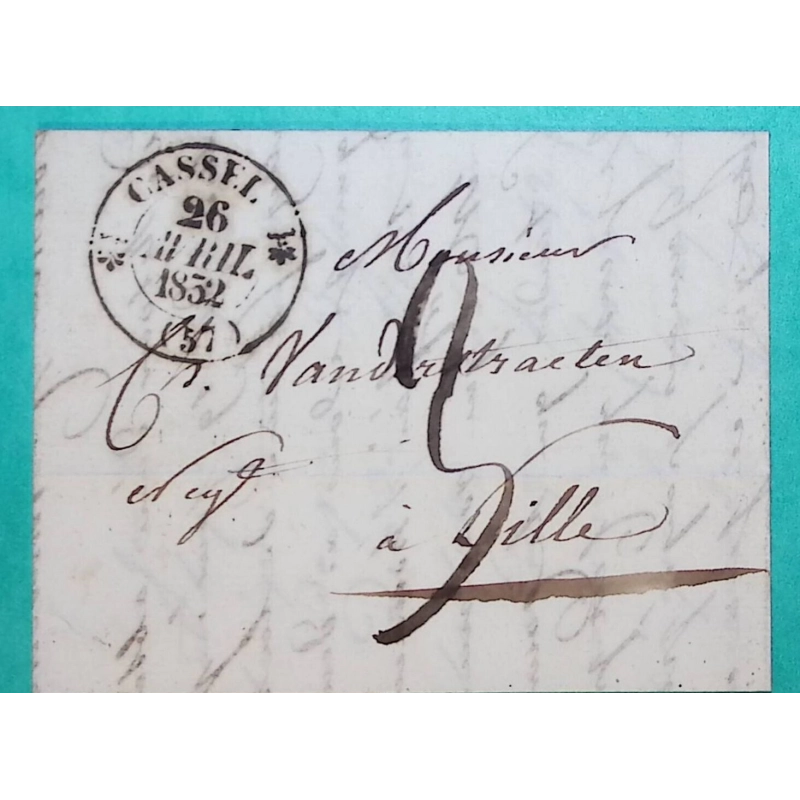 CASSEL
26
AVRIL
1832
(57)
Monsieur
Ch. Vanderstraeten
Negt
à Lille
3